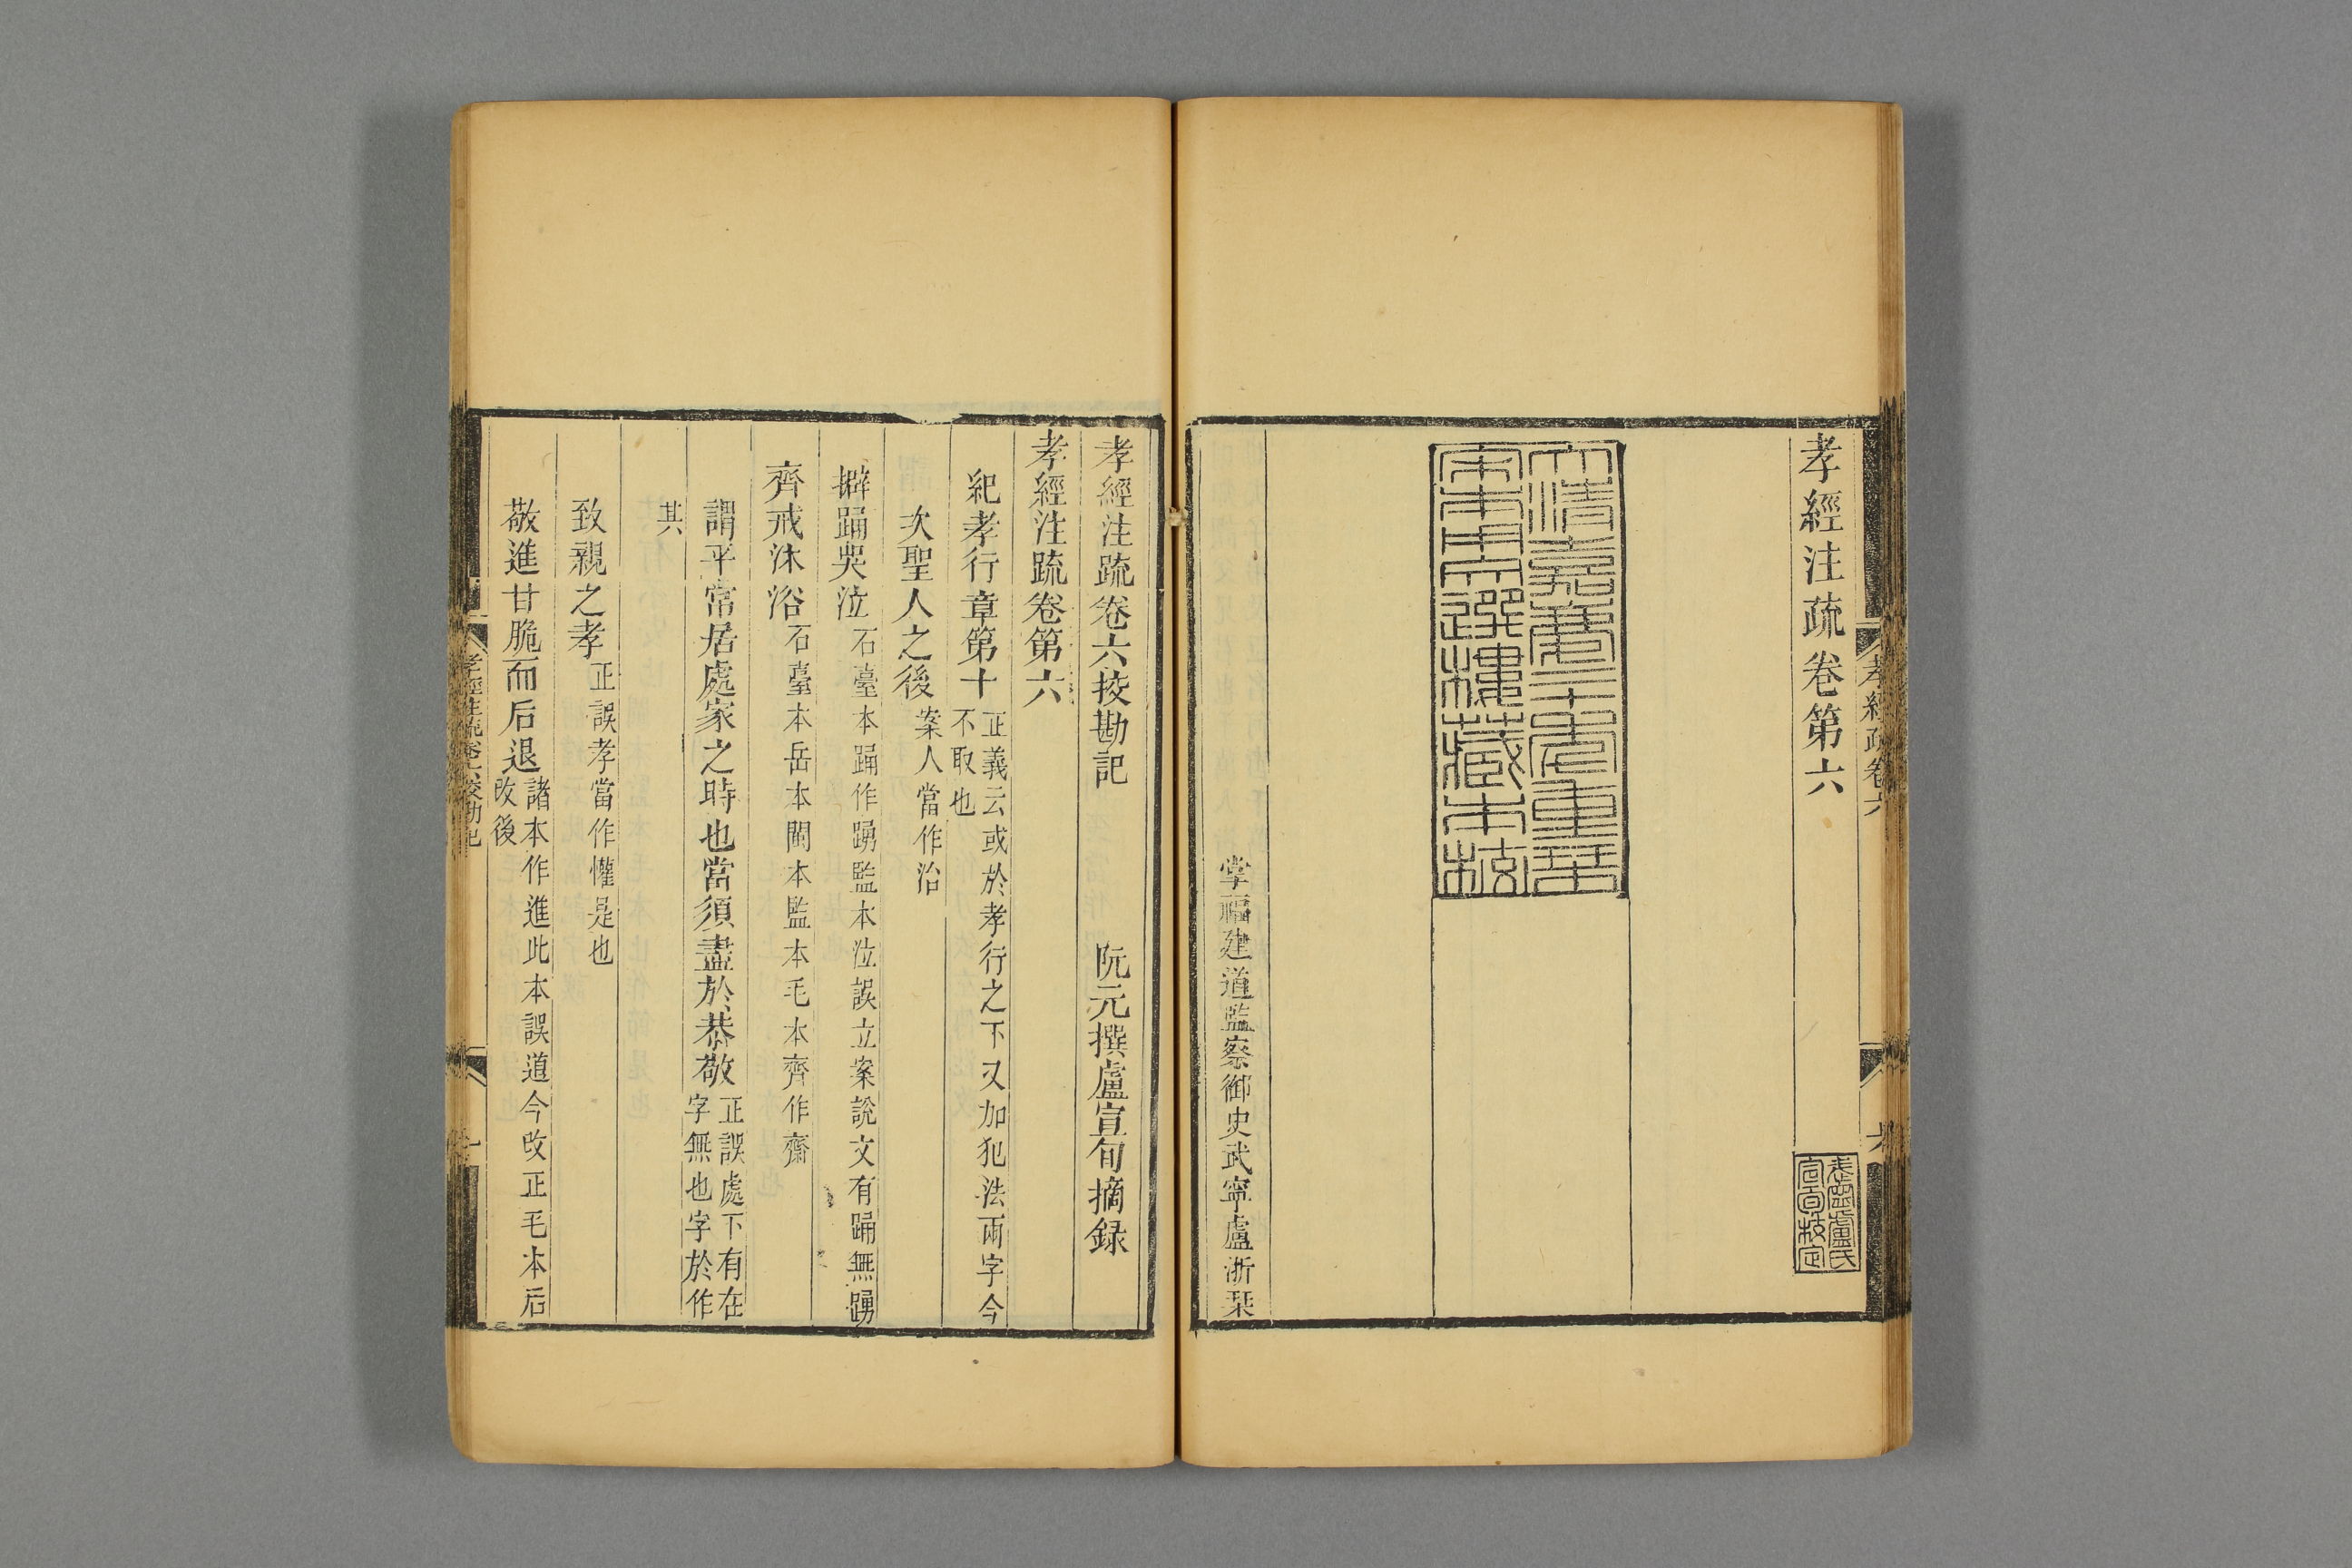 孝經疏卷六
孝經注疏卷第六
武寧盧氏
宣旬校定
大清嘉慶二十年重栞
宋本用文選樓藏本校
掌福建道監察御史武寧盧浙栞
孝經注疏卷六挍勘記　阮元撰盧宣旬摘録
孝經注疏卷第六
紀孝行章第十　正義云或於孝行之下又加犯法兩字今
不取也
次聖人之後　案人當作治
擗踊哭泣　石臺本踊作踴監本泣誤立案說文有踊無踴
齊戒沐浴　石臺本岳本閩本監本毛本齊作齋
謂平常居處家之時也當須盡於恭敬　正誤處下有在
字無也字於作
其
致親之孝　正誤孝當作懽是也
敬進甘脆而后退　諸本作進此本誤道今改正毛本后
改後
孝經注疏卷六校勘記